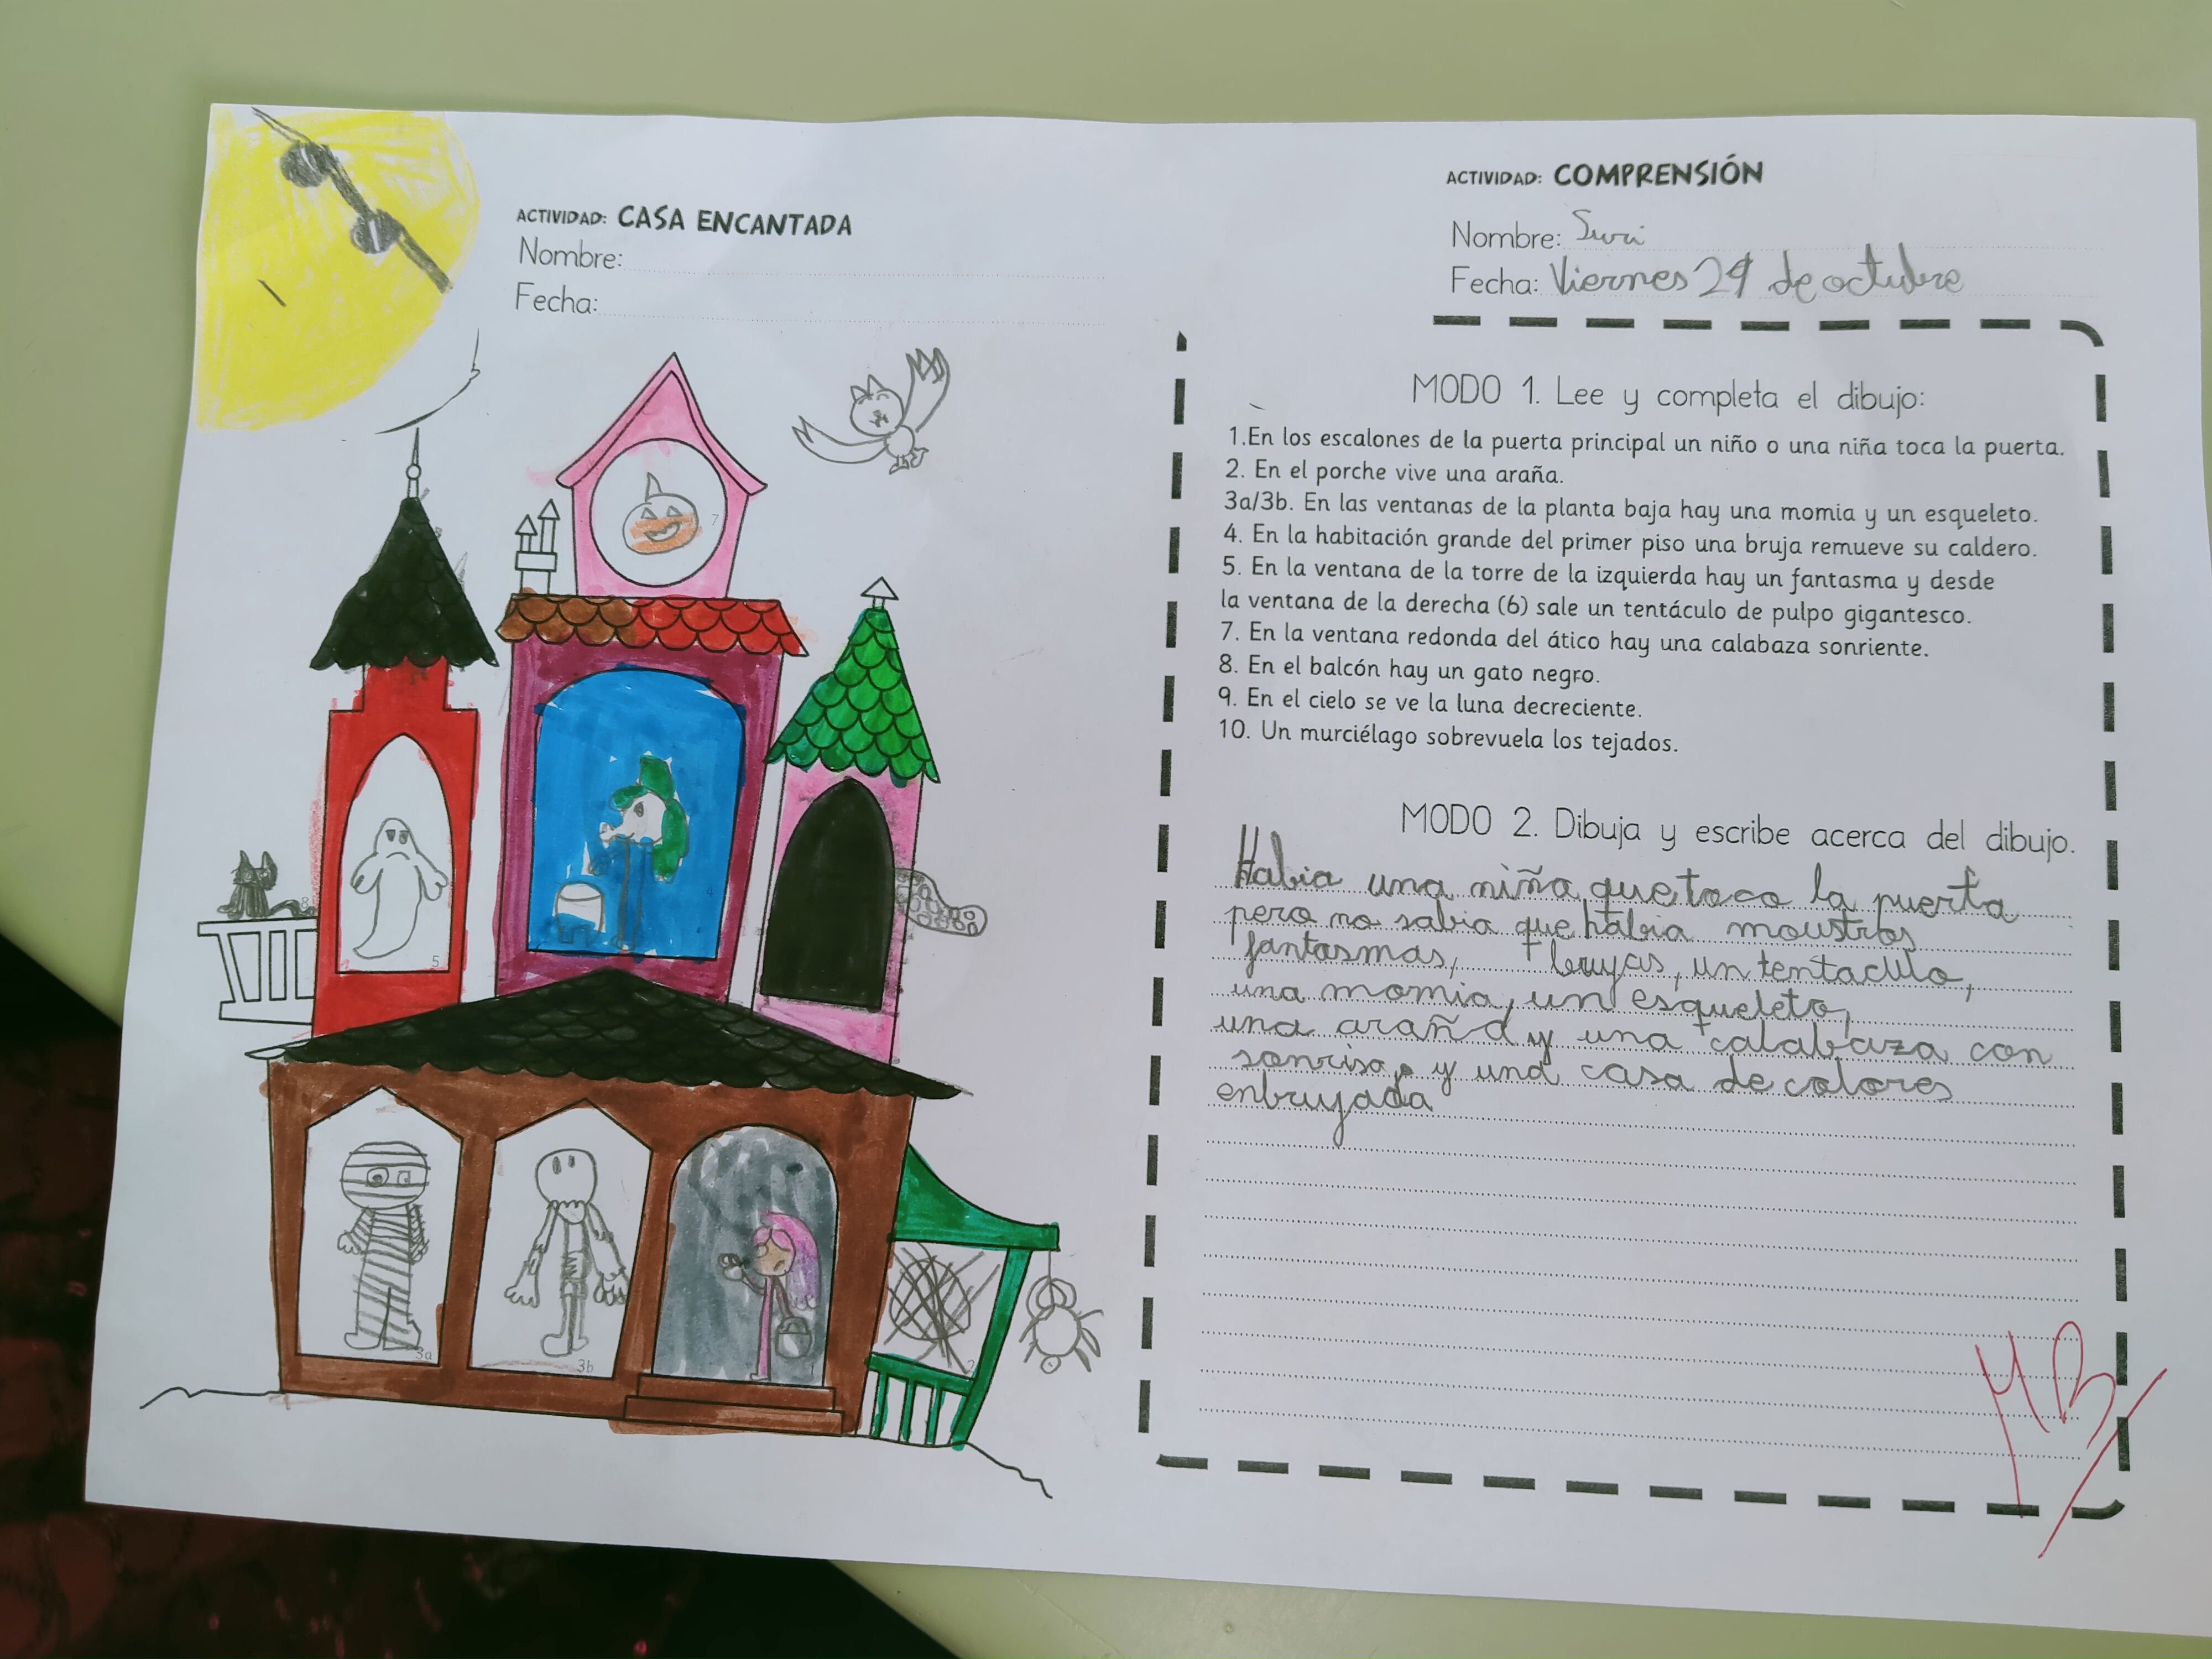 ACTIVIDAD: CASA ENCANTADA
Nombre:
Fecha:
7
5
4
8
3a
3b
1
2
ACTIVIDAD: COMPRENSIÓN
Nombre: Suri
Fecha: Viernes 29 de octubre
MODO 1. Lee y completa el dibujo:
1.En los escalones de la puerta principal un niño o una niña toca la puerta.
2. En el porche vive una araña.
3a/3b. En las ventanas de la planta baja hay una momia y un esqueleto.
4. En la habitación grande del primer piso una bruja remueve su caldero.
5. En la ventana de la torre de la izquierda hay un fantasma y desde
la ventana de la derecha (6) sale un tentáculo de pulpo gigantesco.
7. En la ventana redonda del ático hay una calabaza sonriente.
8. En el balcón hay un gato negro.
9. En el cielo se ve la luna decreciente.
10. Un murciélago sobrevuela los tejados.
MODO 2. Dibuja y escribe acerca del dibujo.
Habia una niña que toco la puerta
pero no sabia que habia moustros
fantasmas, brujas, un tentaculo,
una momia, un esqueleto,
una araña y una calabaza con
sonrisa, y una casa de colores
enbrujada
MB